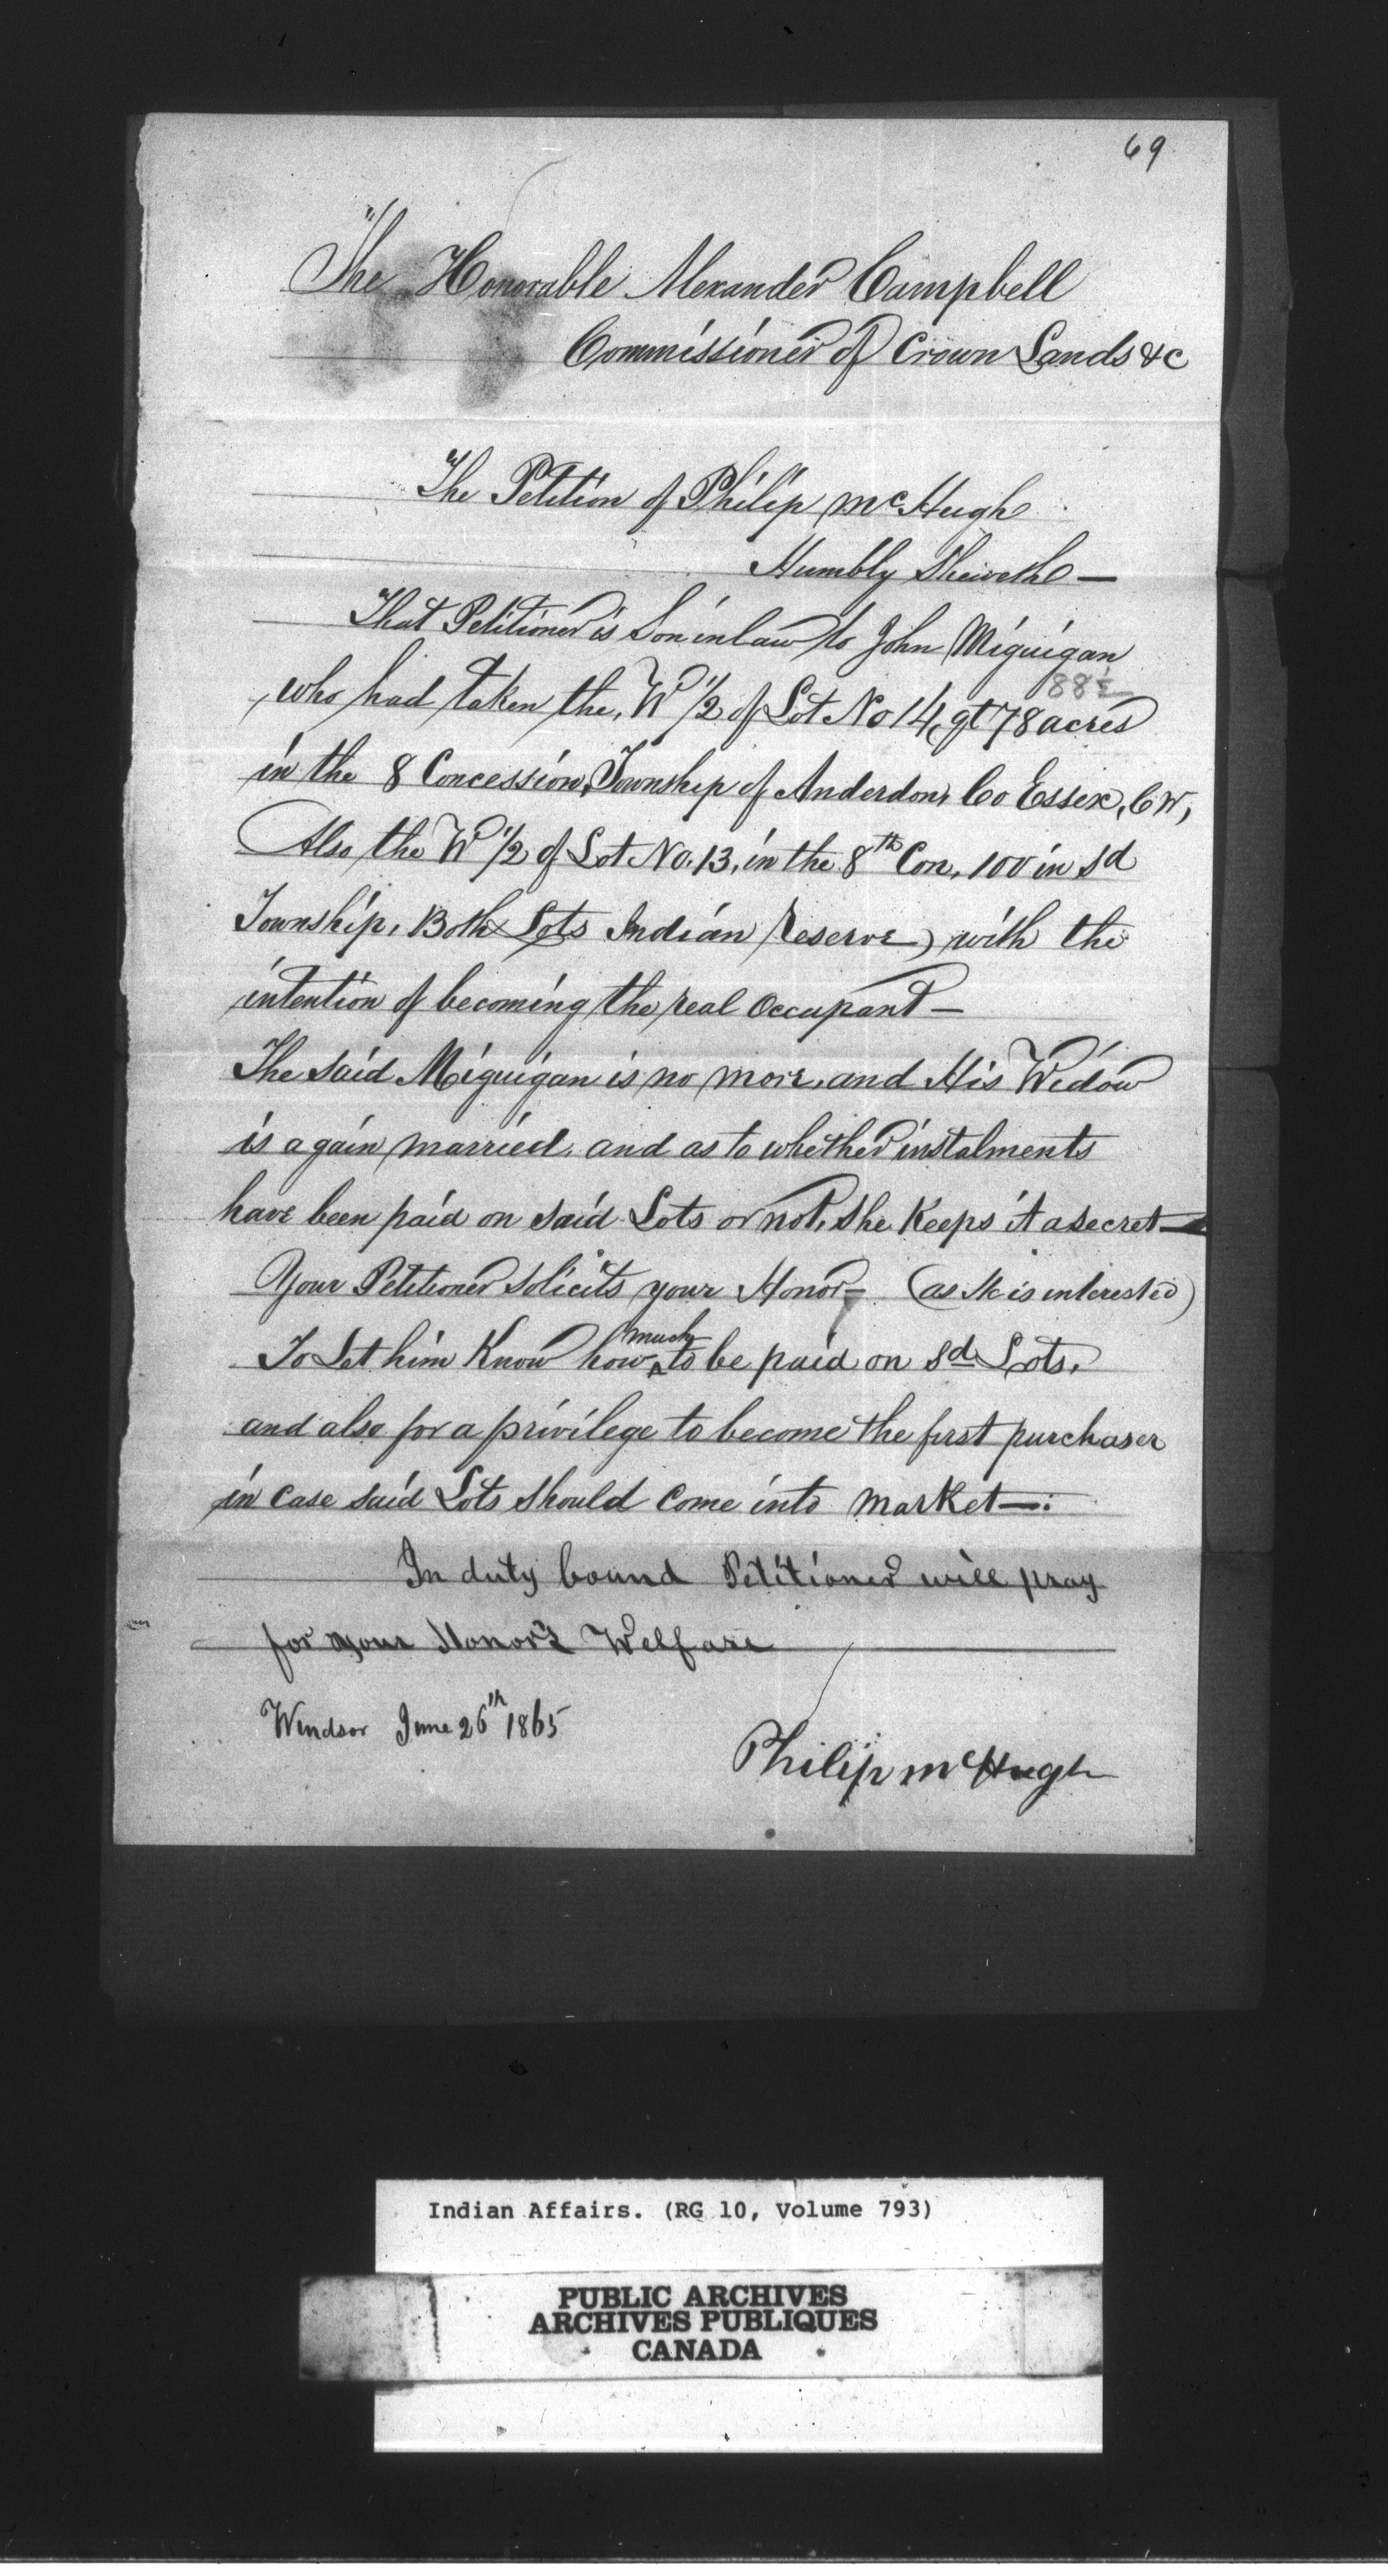 69
The Honorable Alexander Campbell
Commissioner of Crown Lands &c
The Petition of Philip McHugh
Humbly Sheweth —
That Petitioner is Son in law to John Miguigan
88½
who had taken the, W ½ of Lot No 14, gt 78 acres
in the 8 Concession, Township of Anderdon, Co Essex, C W,
Also the W ½ of Lot No. 13, in the 8th Con, 100 in sd
Township, Both Lots Indian Reserve) with the
intention of becoming the real Occupant —
The said Miguigan is no more, and His Widow
is again married, and as to whether instalments
have been paid on said Lots or not, she keeps it a secret —
Your Petitioner solicits your Honor — (as He is interested)
To Let him Know how much to be paid on sd Lots,
and also for a privilege to become the first purchaser
in case said Lots should come into market —:
In duty bound Petitioner will pray
for your Honor's Welfare
Windsor June 26th 1865
Philip McHugh
Indian Affairs. (RG 10, Volume 793)
PUBLIC ARCHIVES
ARCHIVES PUBLIQUES
CANADA